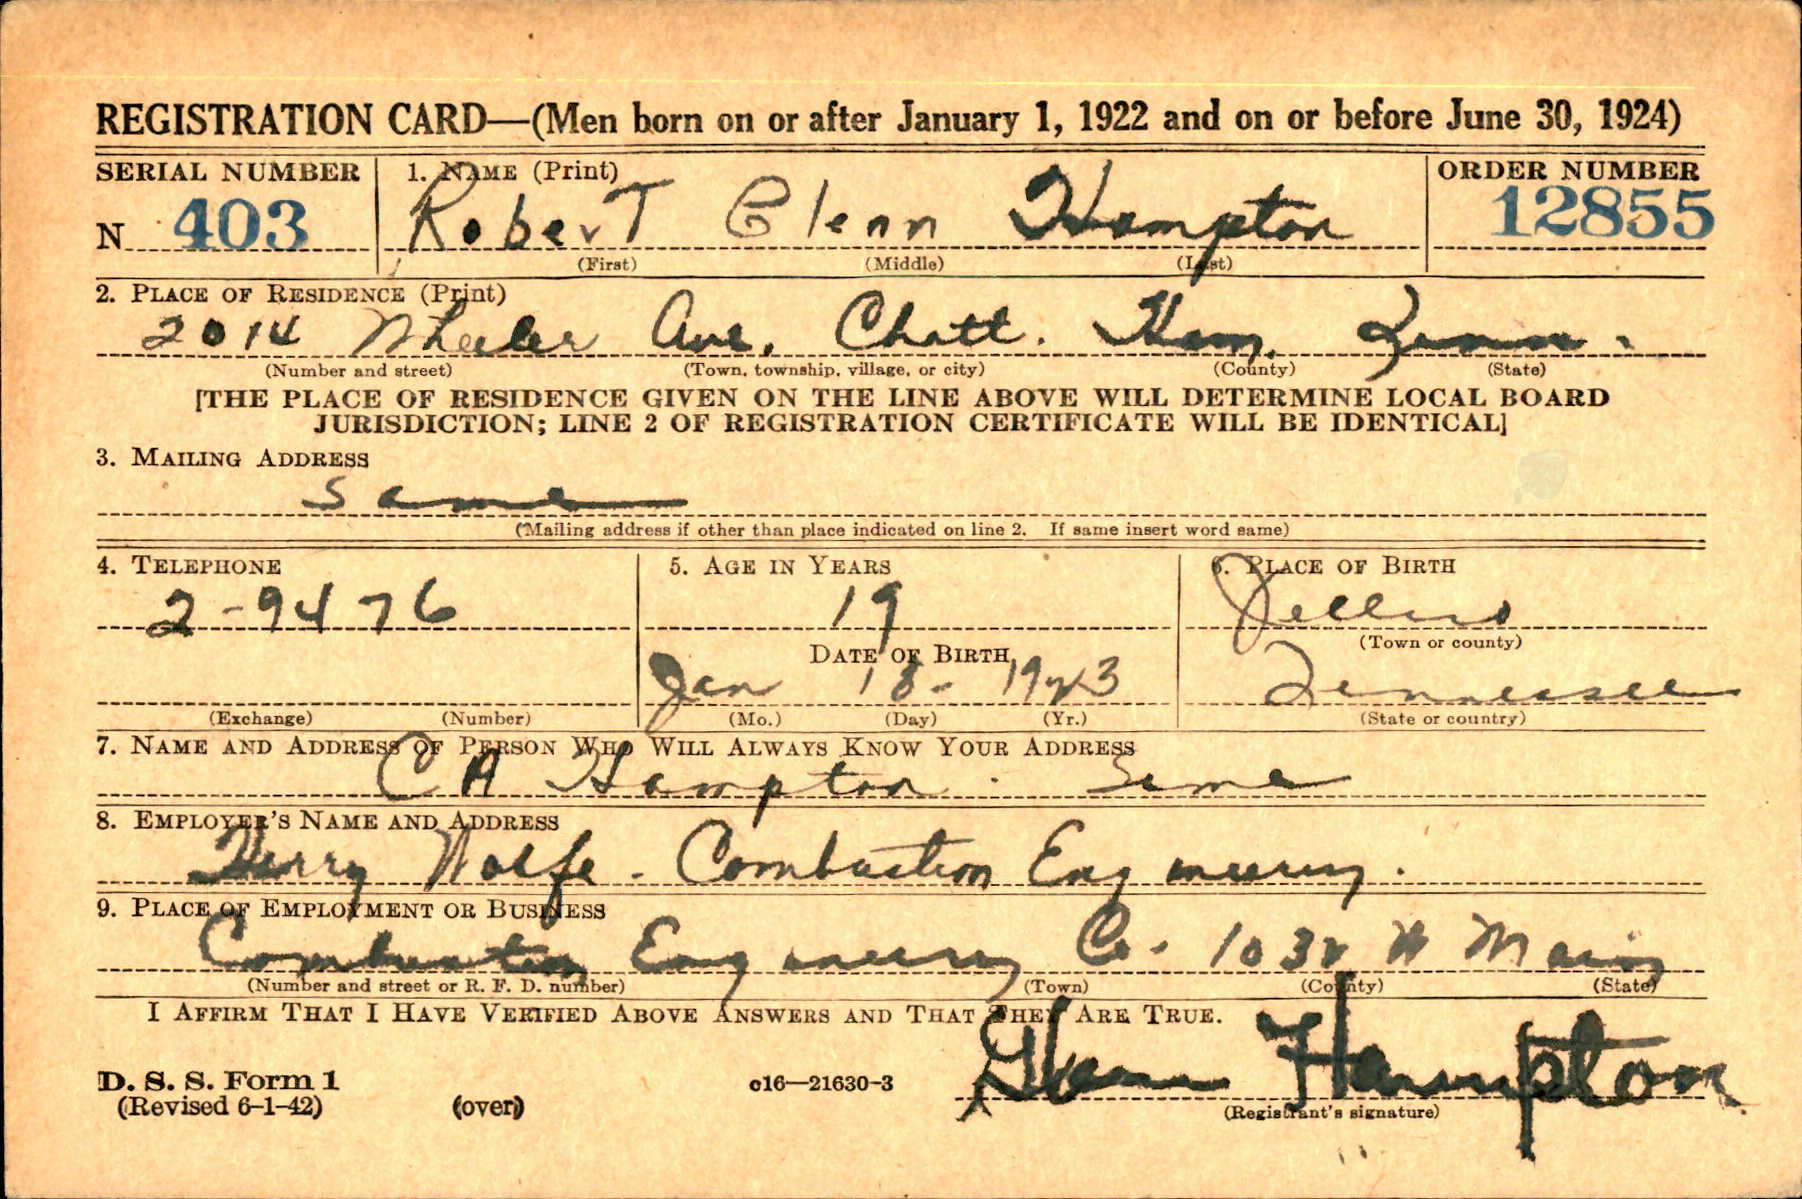 REGISTRATION CARD—(Men born on or after January 1, 1922 and on or before June 30, 1924)
SERIAL NUMBER 1. NAME (Print) ORDER NUMBER
N 403 Robert Glenn Hampton 12855
(First) (Middle) (Last)
2. PLACE OF RESIDENCE (Print)
2014 Wheeler Ave. Chatt. Ham. Tenn.
(Number and street) (Town, township, village, or city) (County) (State)
[THE PLACE OF RESIDENCE GIVEN ON THE LINE ABOVE WILL DETERMINE LOCAL BOARD
JURISDICTION; LINE 2 OF REGISTRATION CERTIFICATE WILL BE IDENTICAL]
3. MAILING ADDRESS
Same
(Mailing address if other than place indicated on line 2. If same insert word same)
4. TELEPHONE 5. AGE IN YEARS 6. PLACE OF BIRTH
2-9476 19
(Town or county)
DATE OF BIRTH
Jan 18- 1923 Tennessee
(Exchange) (Number) (Mo.) (Day) (Yr.) (State or country)
7. NAME AND ADDRESS OF PERSON WHO WILL ALWAYS KNOW YOUR ADDRESS
C A Hampton. Same
8. EMPLOYER'S NAME AND ADDRESS
Harry Wolfe - Combustion Engineering.
9. PLACE OF EMPLOYMENT OR BUSINESS
Combustion Engineering Co. 1032 W Main
(Number and street or R. F. D. number) (Town) (County) (State)
I AFFIRM THAT I HAVE VERIFIED ABOVE ANSWERS AND THAT THEY ARE TRUE.
Glenn Hampton
D. S. S. Form 1 c16—21630-3
(Revised 6-1-42) (over) (Registrant's signature)